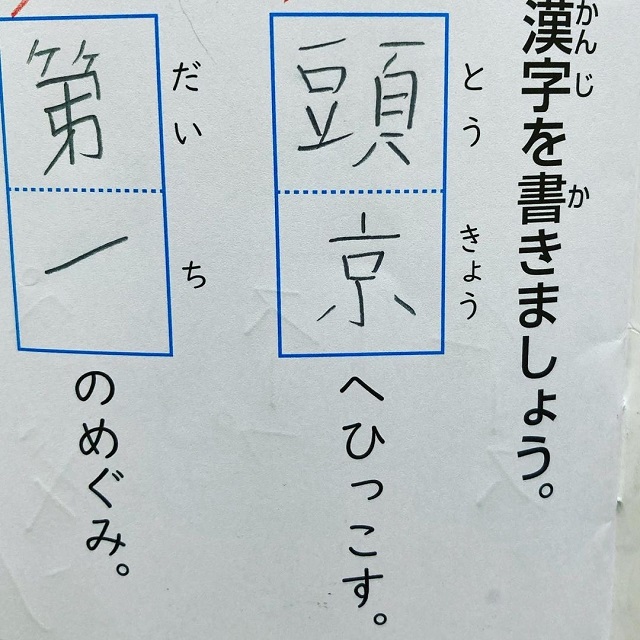 漢字を書きましょう。
かんじ
か
とうきょう
頭京へひっこす。
だいち
第一のめぐみ。